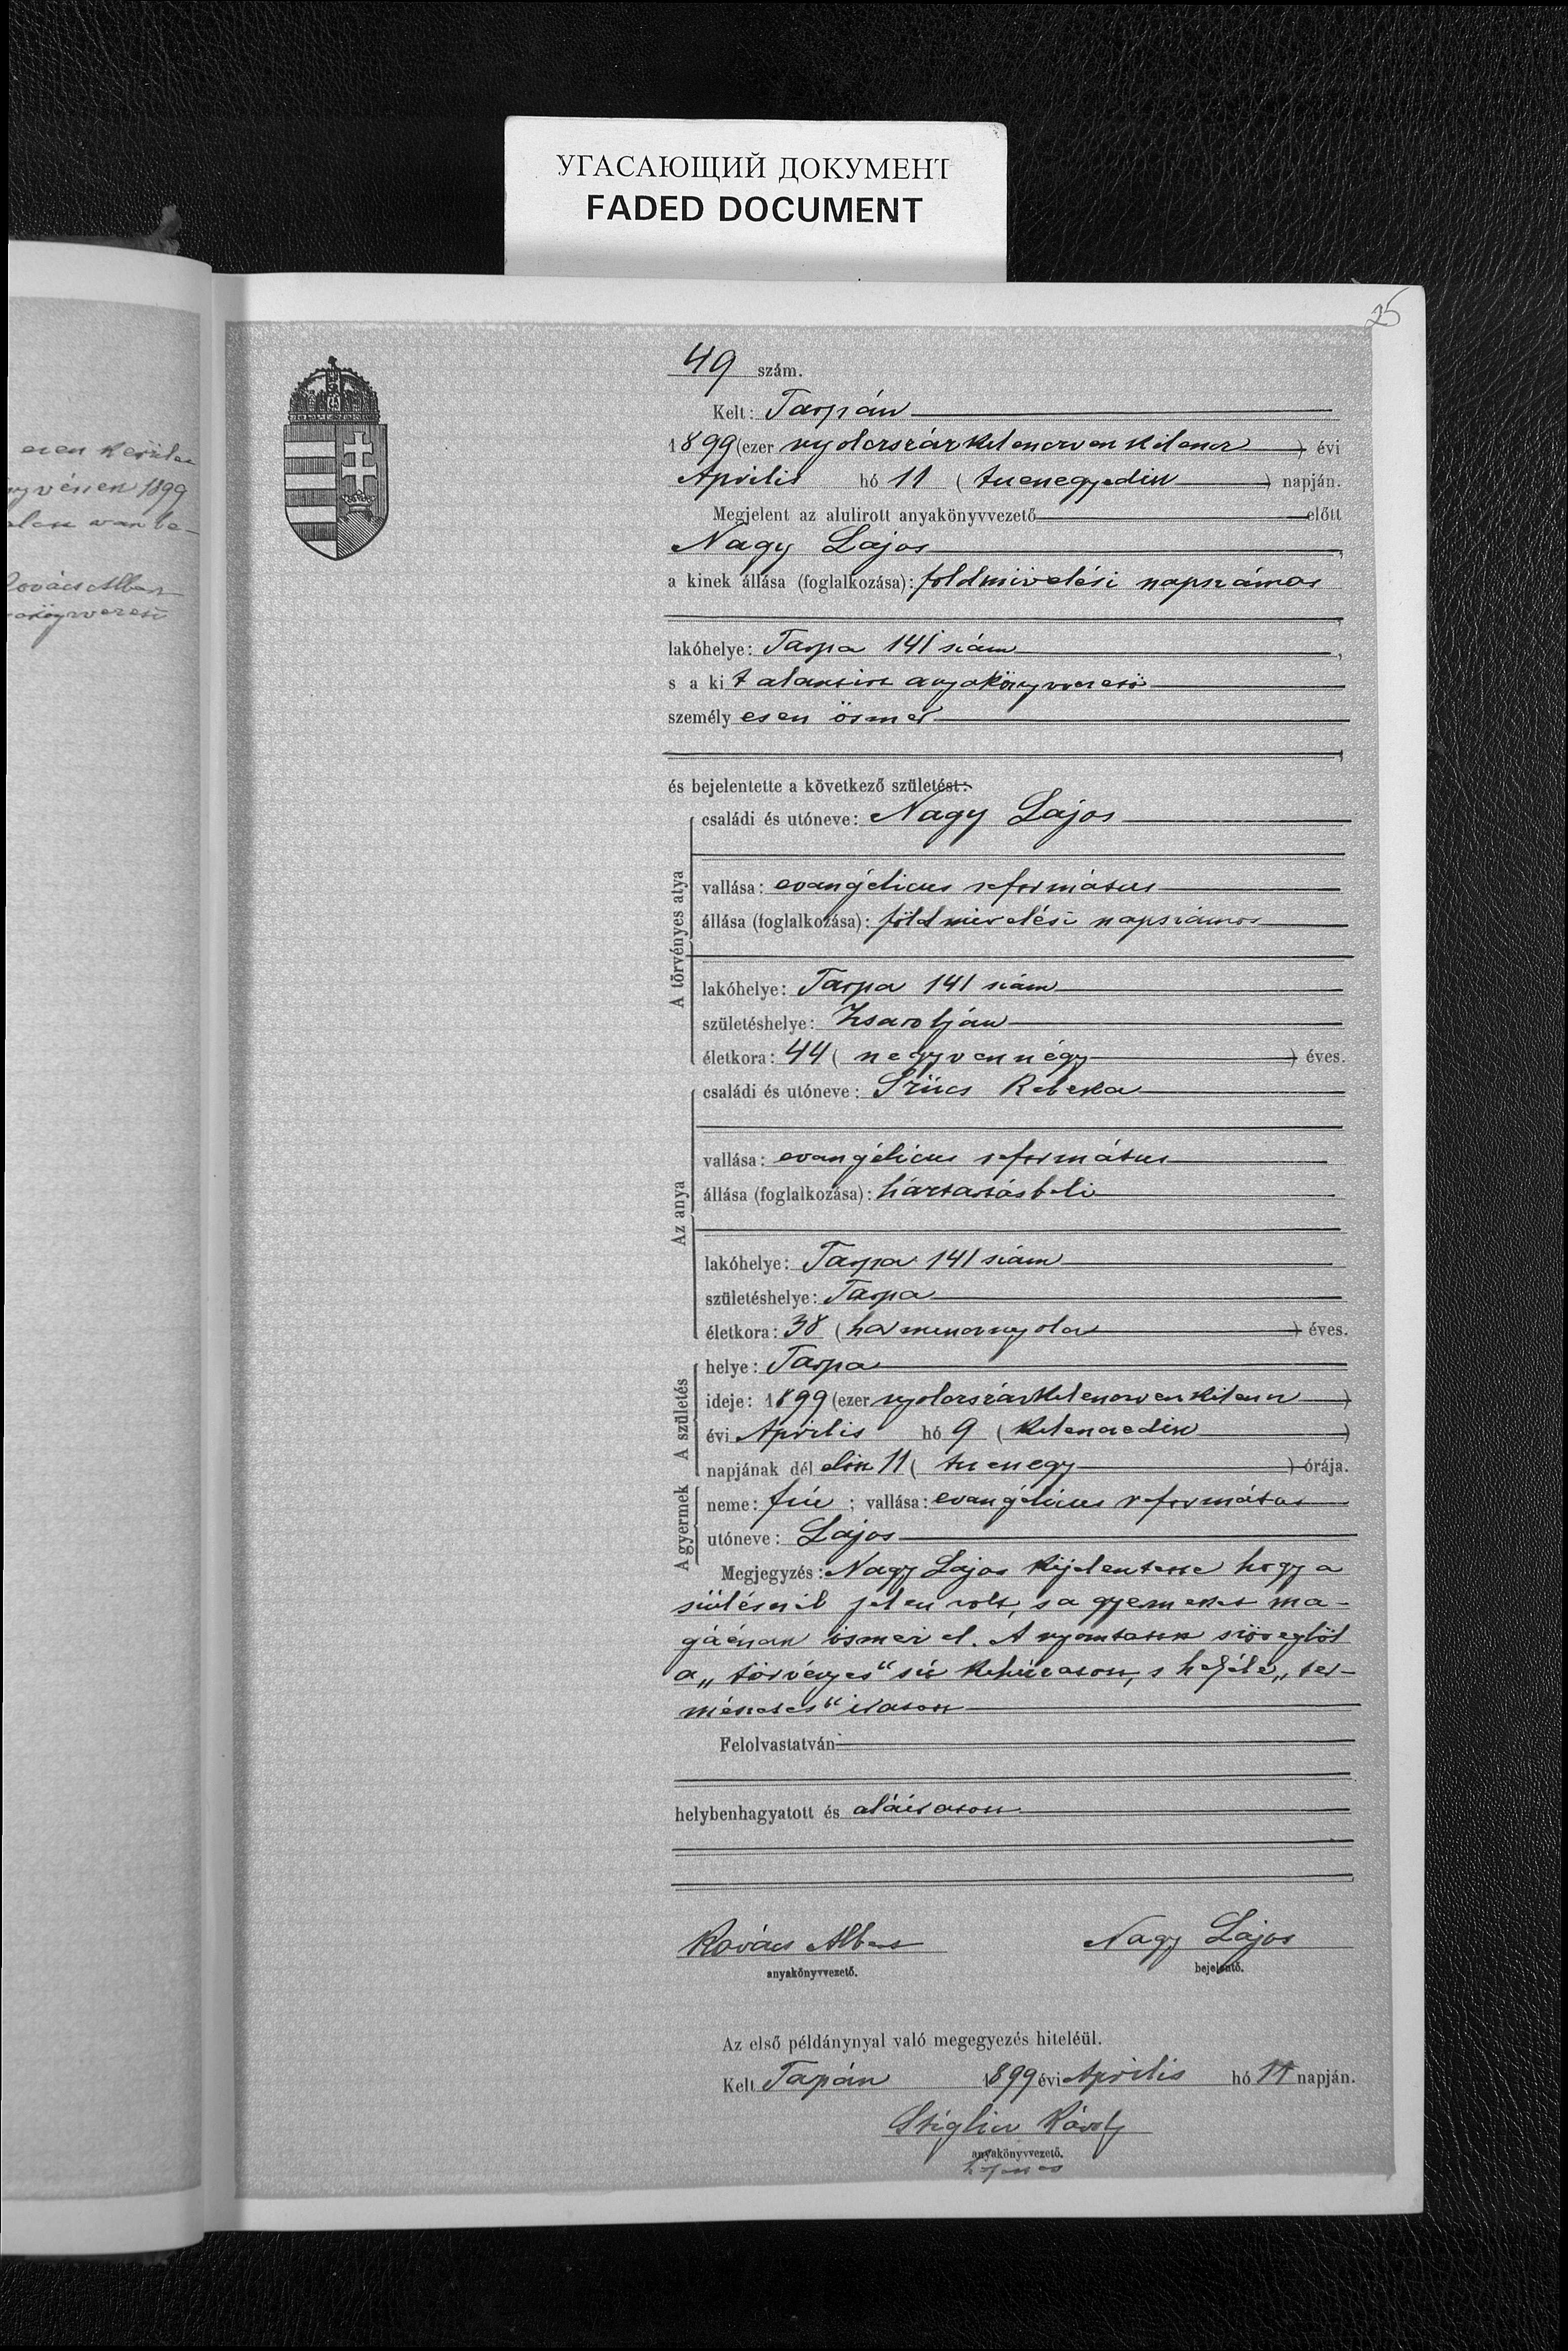 УГАСАЮЩИЙ ДОКУМЕНТ
FADED DOCUMENT
25
49 szám.
Kelt: Tarpán
1899 (ezer nyolczszázkilenczvenkilencz) évi
Április hó 11 (tizenegyedik) napján.
Megjelent az alulirott anyakönyvvezető előtt
Nagy Lajos,
a kinek állása (foglalkozása): földmivelési napszámos
lakóhelye: Tarpa 141 szám,
s a kit alantirt anyakönyvvezető
személyesen ösmer
és bejelentette a következő születést:
A törvényes atya
családi és utóneve: Nagy Lajos
vallása: evangélicus református
állása (foglalkozása): földmivelési napszámos
lakóhelye: Tarpa 141 szám
születéshelye: Zsarolján
életkora: 44 (negyvennégy) éves.
Az anya
családi és utóneve: Szücs Rebeka
vallása: evangélicus református
állása (foglalkozása): háztartásbeli
lakóhelye: Tarpa 141 szám
születéshelye: Tarpa
életkora: 38 (harmincznyolcz) éves.
A születés
helye: Tarpa
ideje: 1899 (ezer nyolczszázkilenczvenkilencz)
évi Április hó 9 (kilenczedik)
napjának dél előtt 11 (tizenegy) órája.
A gyermek
neme: fiú; vallása: evangélicus református
utóneve: Lajos
Megjegyzés: Nagy Lajos kijelentette hogy a
szülésnél jelen volt, s a gyermeket ma-
gáénak ismeri el. A nyomtatott szövegből
a „törvényes" szó kihúzatott, s helyébe „ter-
mészetes" iratott
Felolvastatván
helybenhagyatott és aláiratott
Kovács Albert
anyakönyvvezető.
Nagy Lajos
bejelentő.
Az első példánynyal való megegyezés hiteléül.
Kelt Tarpán 1899 évi Április hó 11 napján.
Stiglicz Károly
anyakönyvvezető.
1899
Kovács Albert